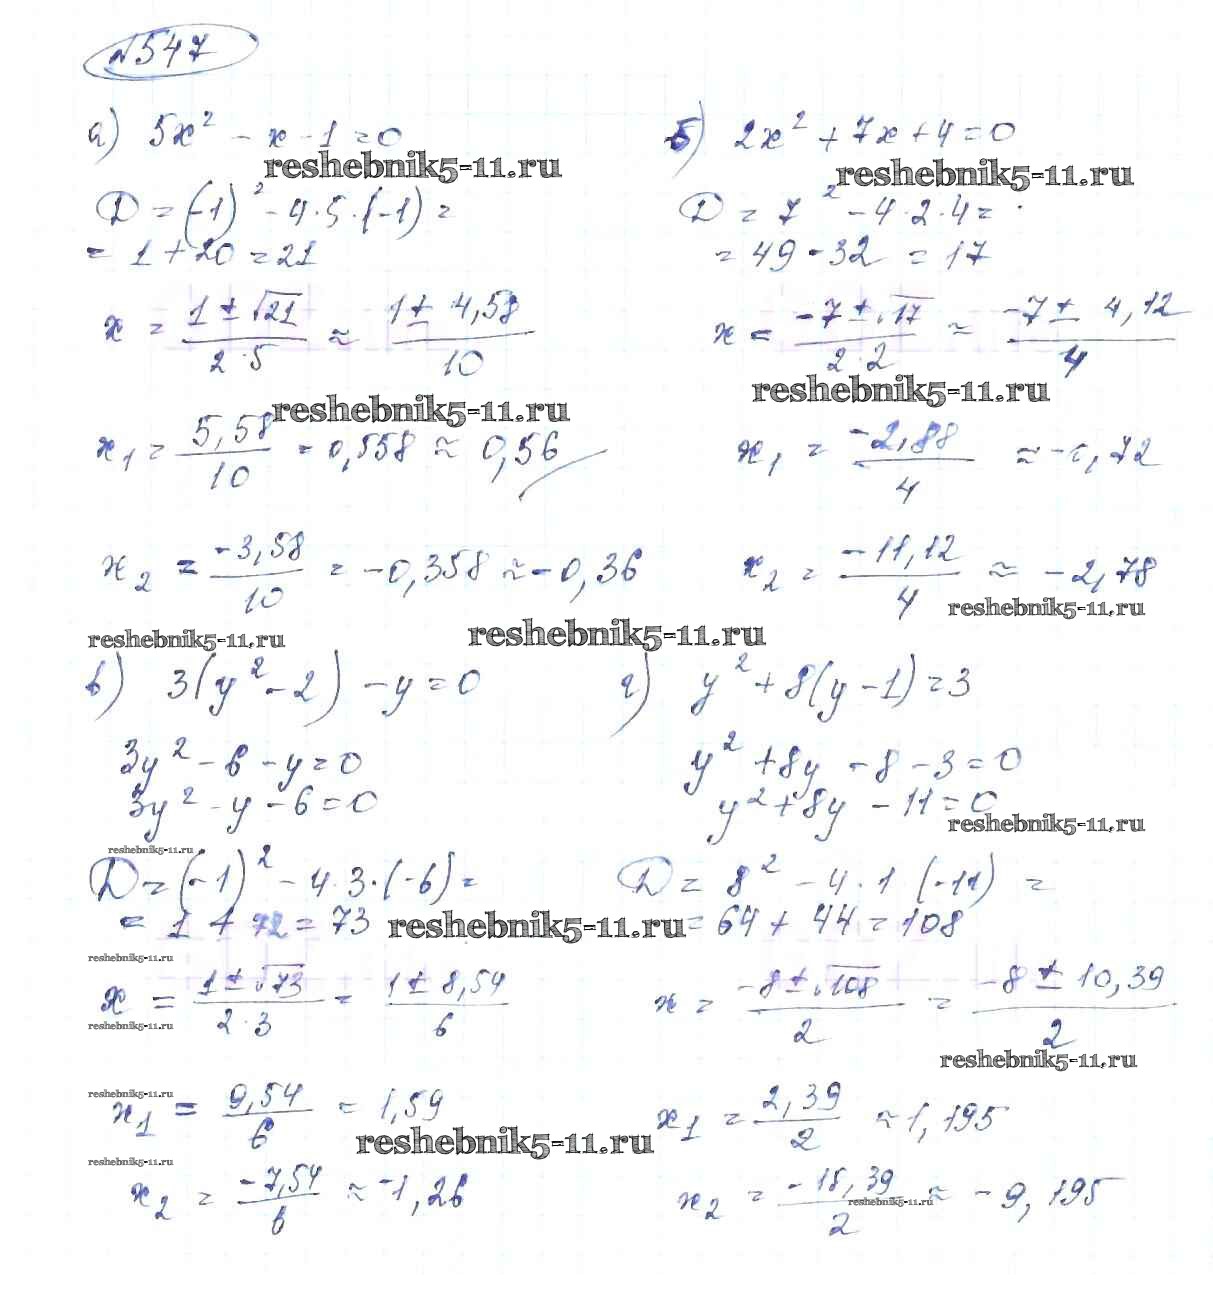 №547
а) 5x² - x - 1 = 0
reshebnik5-11.ru
D = (-1)² - 4·5·(-1) =
= 1 + 20 = 21
x = (1 ± √21)/(2·5) ≈ (1 ± 4,58)/10
reshebnik5-11.ru
x₁ = 5,58/10 = 0,558 ≈ 0,56
x₂ = -3,58/10 = -0,358 ≈ -0,36
reshebnik5-11.ru
б) 2x² + 7x + 4 = 0
reshebnik5-11.ru
D = 7² - 4·2·4 =
= 49 - 32 = 17
x = (-7 ± √17)/(2·2) ≈ (-7 ± 4,12)/4
reshebnik5-11.ru
x₁ = -2,88/4 ≈ -0,72
x₂ = -11,12/4 ≈ -2,78
reshebnik5-11.ru
reshebnik5-11.ru
в) 3(y² - 2) - y = 0
3y² - 6 - y = 0
3y² - y - 6 = 0
reshebnik5-11.ru
D = (-1)² - 4·3·(-6) =
= 1 + 72 = 73
reshebnik5-11.ru
reshebnik5-11.ru
x = (1 ± √73)/(2·3) = (1 ± 8,54)/6
reshebnik5-11.ru
reshebnik5-11.ru
x₁ = 9,54/6 = 1,59
reshebnik5-11.ru
reshebnik5-11.ru
x₂ = -7,54/6 ≈ -1,26
г) y² + 8(y - 1) = 3
y² + 8y - 8 - 3 = 0
y² + 8y - 11 = 0
reshebnik5-11.ru
D = 8² - 4·1 (-11) =
= 64 + 44 = 108
x = (-8 ± √108)/2 = (-8 ± 10,39)/2
reshebnik5-11.ru
x₁ = 2,39/2 ≈ 1,195
x₂ = -18,39/2 ≈ -9,195
reshebnik5-11.ru